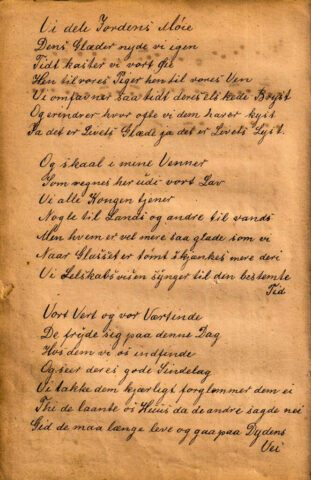 Vi dele Jordens Møie
Dens Glæder nyde vi igen
Tidt kaster vi vort Øie
Hen til vores Piger hen til vores Ven
Vi omfavner saa tidt deres elskede Bryst
Og erindrer hvor ofte vi dem haver kyst
Ja det er Livets Glæde ja det er Livets Lyst.
Og skaal i mine Venner
Som regnes her udi vort Lav
Vi alle Kongen tjener
Nogle til Lands og andre til vands
Men hvem er vel mere saa glade som vi
Naar Glasset er tømt skjænkes mere deri
Vi Selskabsvisen synger til den bestemte
Tid
Vort Vert og vor Værtinde
De fryde sig paa denne Dag
Hos dem vi os indfinde
Og seer deres gode Sindelag
Vi takke dem kjærligt forglemmer dem ei
Thi de laante os Huus da de andre sagde nei
Gid de maa længe leve og gaa paa Dydens
Vei